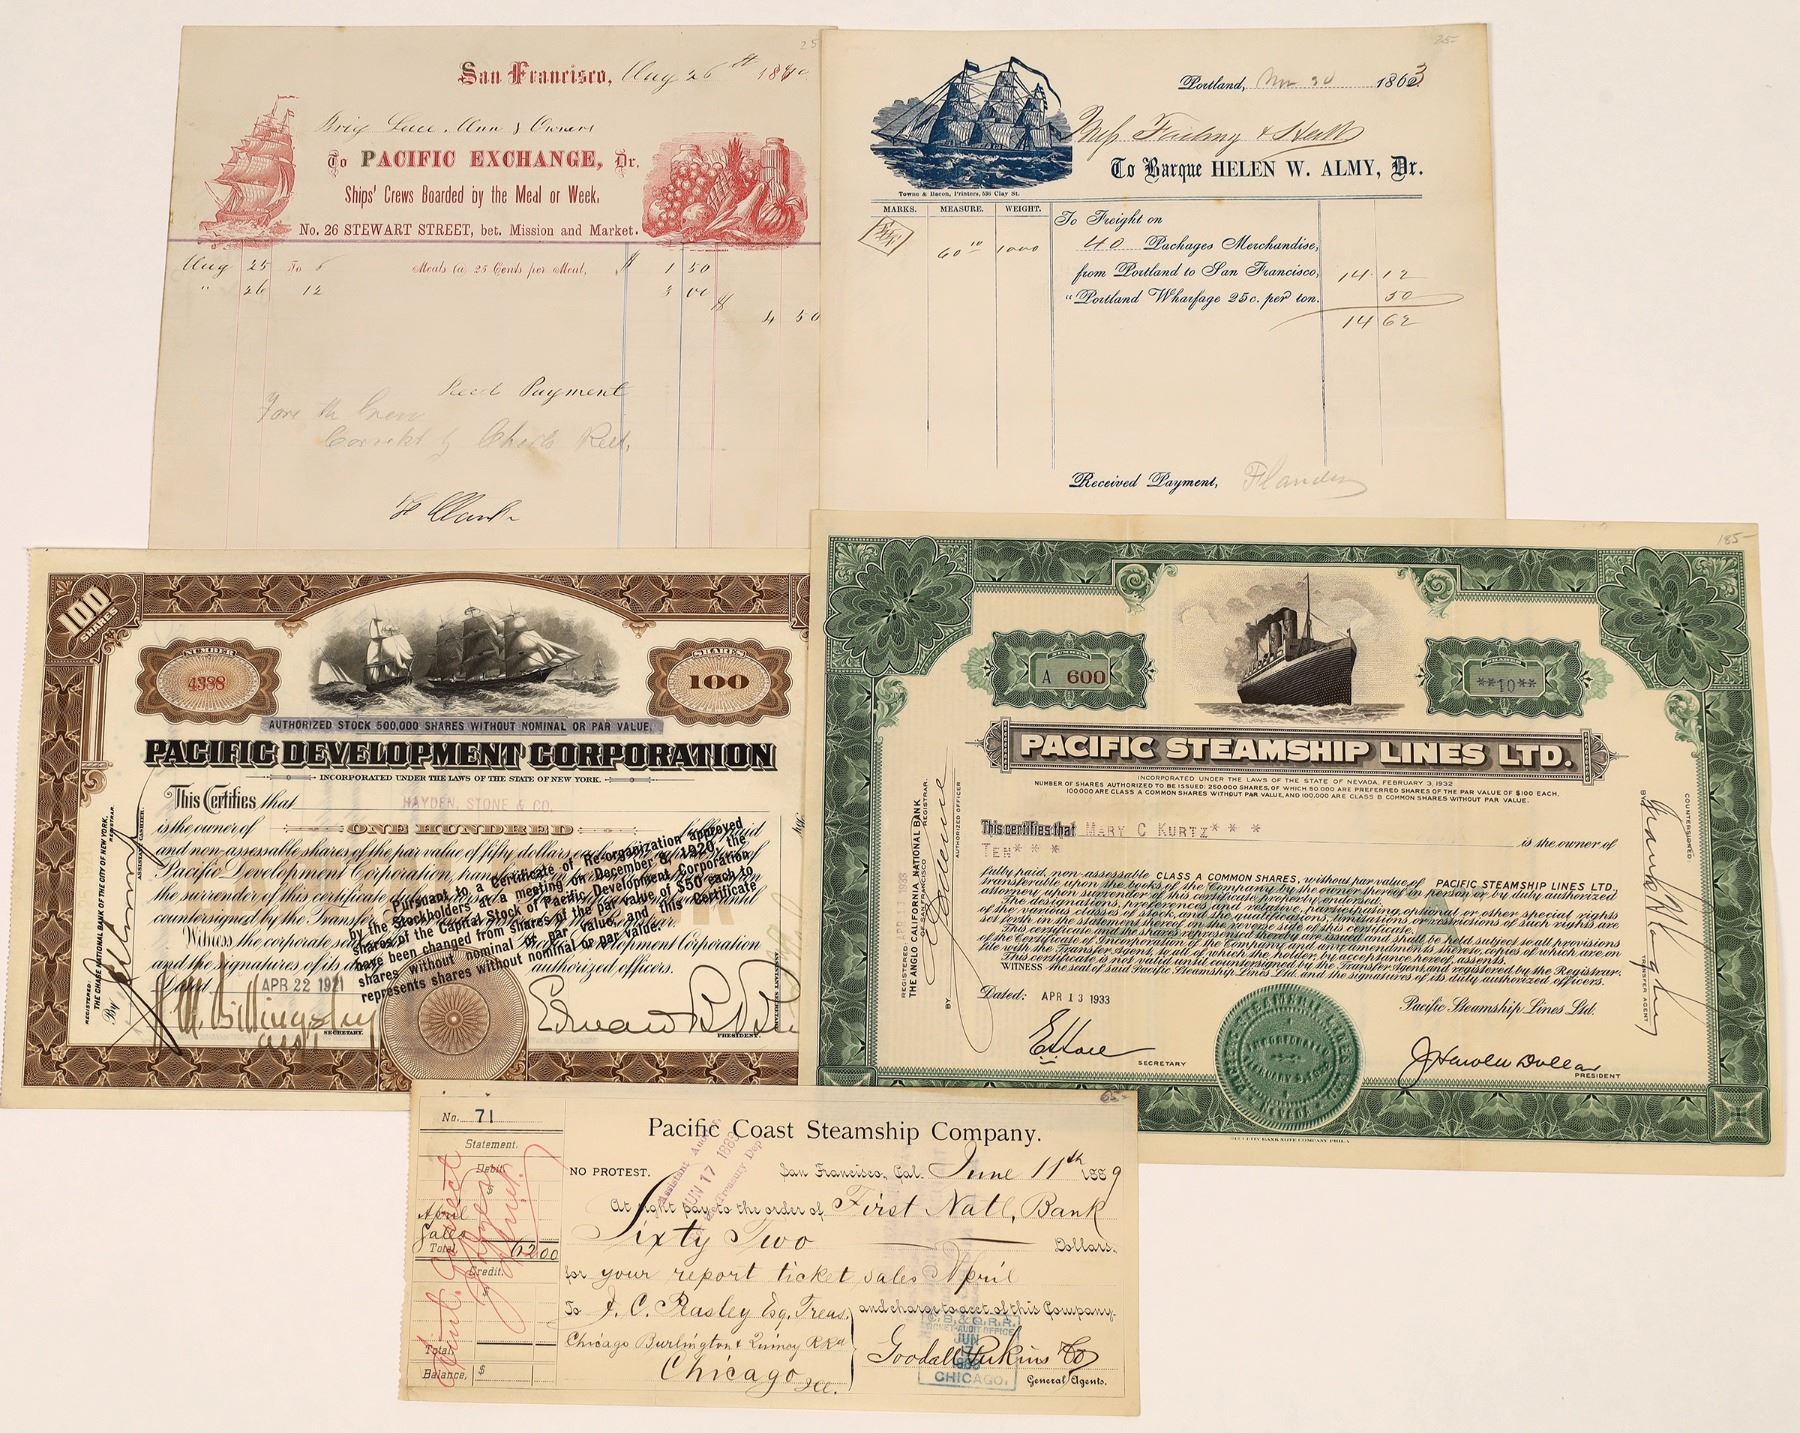 San Francisco, Aug 26th 18
25
Brig & Owners
To PACIFIC EXCHANGE, Dr.
Ships' Crews Boarded by the Meal or Week,
No. 26 STEWART STREET, bet. Mission and Market.
Aug 25 To 6 Meals @ 25 Cents per Meal, $ 1 50
" 26 12 3 00
$ 4 50
Recd Payment
25-
Portland, 30 1863
To Barque HELEN W. ALMY, Dr.
Towne & Bacon, Printers, 536 Clay St.
MARKS. MEASURE. WEIGHT.
60 10 1000
To Freight on
40 Packages Merchandise,
from Portland to San Francisco, 14 12
" Portland Wharfage 25c. per ton. 50
14 62
Received Payment, Flanders
100 SHARES
NUMBER
4388
SHARES
100
AUTHORIZED STOCK 500,000 SHARES WITHOUT NOMINAL OR PAR VALUE.
PACIFIC DEVELOPMENT CORPORATION
INCORPORATED UNDER THE LAWS OF THE STATE OF NEW YORK.
This Certifies that HAYDEN, STONE & CO.
is the owner of ONE HUNDRED fully paid
and non-assessable shares of the par value of fifty dollars each
Pacific Development Corporation,
the surrender of this certificate
countersigned by the Transfer
Witness the corporate seal Development Corporation
and the signatures of its duly authorized officers.
Dated APR 22 1921
Pursuant to a Certificate of Re-organization approved
by the Stockholders at a meeting on December 8, 1920, the
shares of the Capital Stock of Pacific Development Corporation
have been changed from shares of the par value of $50 each to
shares without nominal or par value, and this Certificate
represents shares without nominal or par value.
SECRETARY.
PRESIDENT.
REGISTERED:
THE CHASE NATIONAL BANK OF THE CITY OF NEW YORK,
REGISTRAR.
By
185-
NUMBER
A 600
SHARES
**10**
PACIFIC STEAMSHIP LINES LTD.
INCORPORATED UNDER THE LAWS OF THE STATE OF NEVADA, FEBRUARY 3, 1932
NUMBER OF SHARES AUTHORIZED TO BE ISSUED: 250,000 SHARES, OF WHICH 50,000 ARE PREFERRED SHARES OF THE PAR VALUE OF $100 EACH,
100,000 ARE CLASS A COMMON SHARES WITHOUT PAR VALUE, AND 100,000 ARE CLASS B COMMON SHARES WITHOUT PAR VALUE.
This certifies that MARY C KURTZ* * *
TEN* * * is the owner of
fully paid, non-assessable CLASS A COMMON SHARES, without par value, of PACIFIC STEAMSHIP LINES LTD.,
transferable upon the books of the Company by the holder hereof in person or by duly authorized
attorney upon surrender of this certificate properly endorsed.
The designations, preferences and relative, participating, optional or other special rights
of the various classes of stock and the qualifications, limitations or restrictions of such rights are
set forth in the statement printed on the reverse side of this certificate.
This certificate and the shares represented hereby are issued and shall be held subject to all provisions
of the Certificate of Incorporation of the Company and amendments thereto, copies of which are on
file with the Transfer Agent, to all of which the holder, by acceptance hereof, assents.
This certificate is not valid until countersigned by the Transfer Agent, and registered by the Registrar.
WITNESS the seal of said Pacific Steamship Lines Ltd. and the signatures of its duly authorized officers.
Dated: APR 13 1933
Pacific Steamship Lines Ltd.
SECRETARY
J. Harold Dollar
PRESIDENT
REGISTERED: APR 13 1933
THE ANGLO CALIFORNIA NATIONAL BANK
OF SAN FRANCISCO REGISTRAR.
BY
AUTHORIZED OFFICER
COUNTERSIGNED:
BY
TRANSFER AGENT
SECURITY BANK NOTE COMPANY PHILA
65-
No. 71
Statement.
Debit.
$
April
Sales
Total, 62 00
Credit.
Total,
Balance, $
Pacific Coast Steamship Company.
NO PROTEST. San Francisco, Cal. June 11th 1889
At sight pay to the order of First Natl, Bank
Sixty Two Dollars.
for your report ticket sales April
To J. C. Peasley Esq. Treas, and charge to acct. of this Company.
Chicago Burlington & Quincy RRd
Chicago Ill.
Goodall Perkins & Co
General Agents.
JUN 17
C. B. & Q. R. R.
TICKET AUDIT OFFICE
JUN
17
CHICAGO.